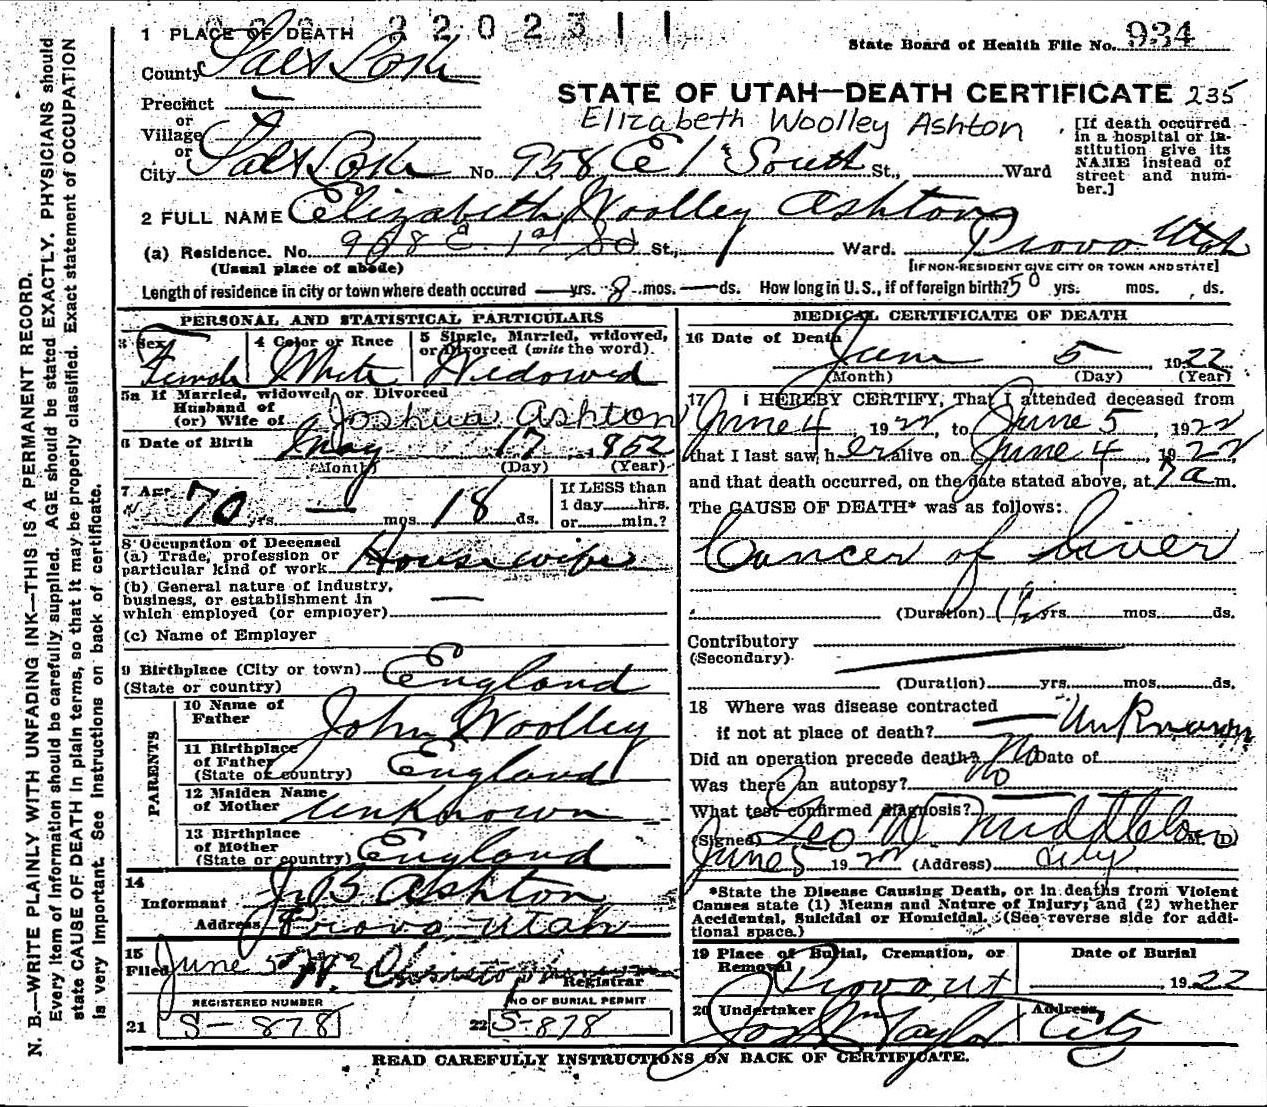 1 PLACE OF DEATH
State Board of Health File No. 934
County Salt Lake
STATE OF UTAH—DEATH CERTIFICATE 235
Precinct
or
Village
or
Elizabeth Woolley Ashton
[If death occurred
in a hospital or in-
stitution give its
NAME instead of
street and num-
ber.]
City Salt Lake No. 958 E 1 South St., Ward
2 FULL NAME Elizabeth Woolley Ashton
(a) Residence. No. 958 E. 1st So St., Ward. Provo Utah
(Usual place of abode)
[IF NON-RESIDENT GIVE CITY OR TOWN AND STATE]
Length of residence in city or town where death occured — yrs. 8 mos. — ds. How long in U.S., if of foreign birth? 50 yrs. mos. ds.
PERSONAL AND STATISTICAL PARTICULARS
3 Sex
Female
4 Color or Race
White
5 Single, Married, widowed,
or Divorced (write the word).
Widowed
5a If Married, widowed, or Divorced
Husband of
(or) Wife of Joshua Ashton
6 Date of Birth May 17 1852
(Month) (Day) (Year)
7 Age 70 yrs. — mos. 18 ds.
If LESS than
1 day hrs.
or min.?
8 Occupation of Deceased
(a) Trade, profession or
particular kind of work Housewife
(b) General nature of industry,
business, or establishment in
which employed (or employer) —
(c) Name of Employer
9 Birthplace (City or town)
(State or country) England
PARENTS
10 Name of
Father John Woolley
11 Birthplace
of Father
(State or country) England
12 Maiden Name
of Mother Unknown
13 Birthplace
of Mother
(State or country) England
14
Informant J. B Ashton
Address Provo Utah
15
Filed June 5
Registrar
REGISTERED NUMBER
21 S-878
NO OF BURIAL PERMIT
22 S-878
MEDICAL CERTIFICATE OF DEATH
16 Date of Death June 5 1922
(Month) (Day) (Year)
17 I HEREBY CERTIFY, That I attended deceased from
June 4 1922, to June 5, 1922
that I last saw her alive on June 4, 1922,
and that death occurred, on the date stated above, at 7 a m.
The CAUSE OF DEATH* was as follows:
Cancer of Liver
(Duration) 1 1/2 yrs. mos. ds.
Contributory
(Secondary)
(Duration) yrs. mos. ds.
18 Where was disease contracted
if not at place of death? Unknown
Did an operation precede death? No Date of
Was there an autopsy? No
What test confirmed diagnosis?
(Signed) Geo W. Middleton M. D.
June 5 1922 (Address) City
*State the Disease Causing Death, or in deaths from Violent
Causes state (1) Means and Nature of Injury; and (2) whether
Accidental, Suicidal or Homicidal. (See reverse side for addi-
tional space.)
19 Place of Burial, Cremation, or
Removal
Provo ut
Date of Burial
1922
20 Undertaker
Jos Wm Taylor
Address
City
READ CAREFULLY INSTRUCTIONS ON BACK OF CERTIFICATE.
N. B.—WRITE PLAINLY WITH UNFADING INK—THIS IS A PERMANENT RECORD.
Every item of information should be carefully supplied. AGE should be stated EXACTLY. PHYSICIANS should
state CAUSE OF DEATH in plain terms, so that it may be properly classified. Exact statement of OCCUPATION
is very important. See instructions on back of certificate.